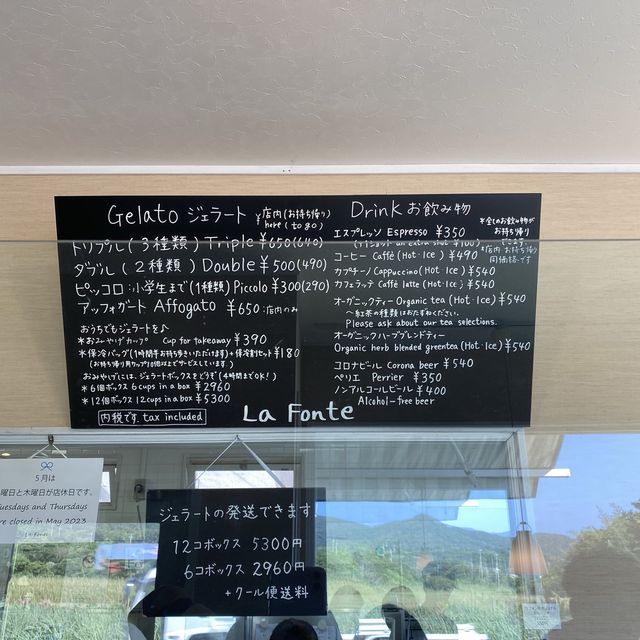 Gelato ジェラート ¥店内(お持ち帰り)
here (to go)
トリプル(3種類) Triple ¥650(640)
ダブル(2種類) Double ¥500(490)
ピッコロ:小学生まで(1種類) Piccolo ¥300(290)
アッフォガート Affogato ¥650:店内のみ
おうちでもジェラートを♪
*おみやげカップ cup for takeaway ¥390
*保冷バッグ(1時間半お持ち歩きいただけます)+保冷剤セット¥180
(お持ち帰り用カップ10個以上でサービスしています)
おみやげには、ジェラートボックスをどうぞ(4時間までOK!)
*6個ボックス 6cups in a box ¥2960
*12個ボックス 12cups in a box ¥5300
内税です. tax included
Drink お飲み物
*全てのお飲み物が
お持ち帰り
できます
*店内・お持ち帰り
同価格です
エスプレッソ Espresso ¥350
(1ショット un extra shot ¥100)
コーヒー Caffè (Hot・Ice) ¥490
カプチーノ Cappuccino (Hot・Ice) ¥540
カフェラッテ Caffè latte (Hot・Ice) ¥540
オーガニックティー Organic tea (Hot・Ice) ¥540
〜紅茶の種類はおたずねください.
Please ask about our tea selections.
オーガニックハーブブレンドティー
Organic herb blended greentea (Hot・Ice) ¥540
コロナビール Corona beer ¥540
ペリエ Perrier ¥350
ノンアルコールビール ¥400
Alcohol-free beer
La Fonte
5月は
曜日と木曜日が店休日です。
uesdays and Thursdays
re closed in May 2023
La Fonte
ジェラートの発送できます!
12コボックス 5300円
6コボックス 2960円
+クール便送料